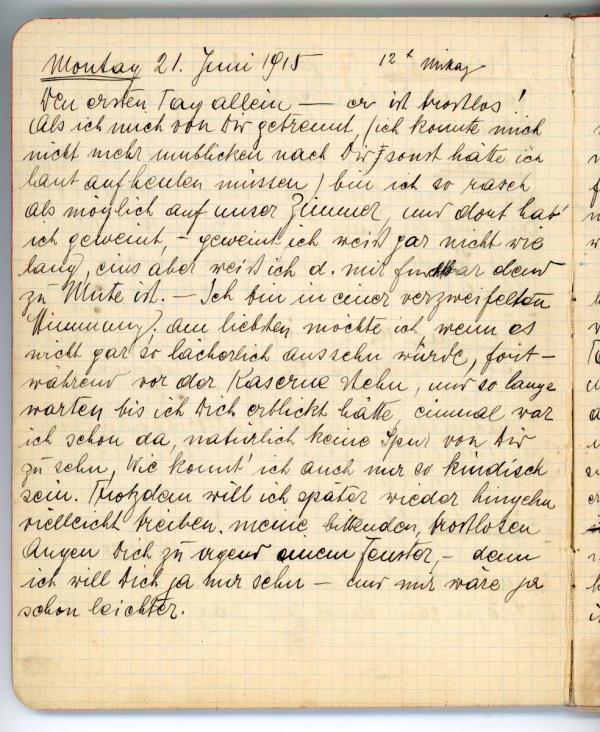 Montag 21. Juni 1915 12h Mittag
Den ersten Tag allein — er ist trostlos!
Als ich mich von Dir getrennt, (ich konnte mich
nicht mehr umblicken nach Dir, sonst hätte ich
laut aufheulen müssen) bin ich so rasch
als möglich auf unser Zimmer, und dort hab'
ich geweint, – geweint ich weiss gar nicht wie
lang, eins aber weiss ich d. mir furchtbar elend
zu Mute ist. – Ich bin in einer verzweifelten
Stimmung, am liebsten möchte ich, wenn es
nicht gar so lächerlich aussehn würde, fort-
während vor der Kaserne stehn, und so lange
warten bis ich Dich erblickt hätte, einmal war
ich schon da, natürlich keine Spur von Dir
zu sehn, Wie konnt' ich auch nur so kindisch
sein. Trotzdem will ich später wieder hingehn
vielleicht treiben meine bittenden, trostlosen
Augen Dich zu irgend einem Fenster, – denn
ich will Dich ja nur sehn – und mir wäre ja
schon leichter.